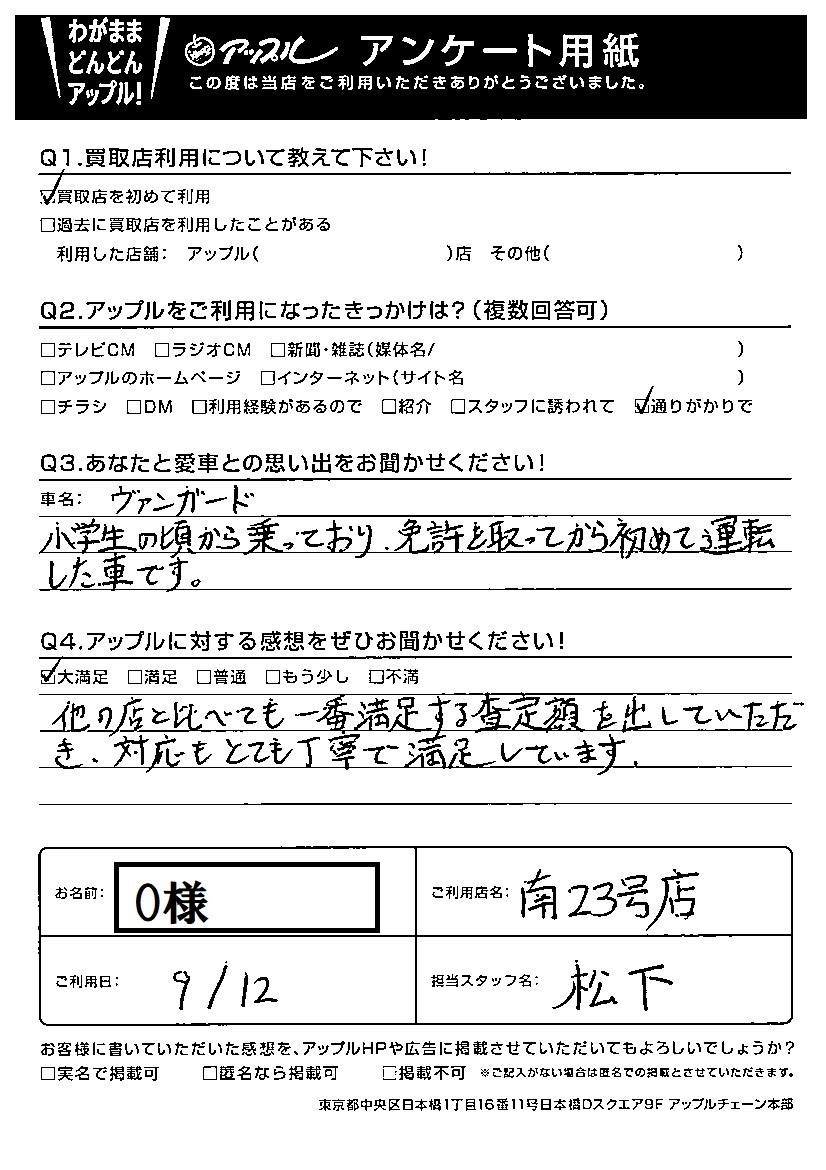 わがまま
どんどん
アップル!
アップル アンケート用紙
この度は当店をご利用いただきありがとうございました。
Q1.買取店利用について教えて下さい!
☑買取店を初めて利用
□過去に買取店を利用したことがある
利用した店舗: アップル( )店 その他( )
Q2.アップルをご利用になったきっかけは?(複数回答可)
□テレビCM □ラジオCM □新聞・雑誌(媒体名/ )
□アップルのホームページ □インターネット(サイト名 )
□チラシ □DM □利用経験があるので □紹介 □スタッフに誘われて ☑通りがかりで
Q3.あなたと愛車との思い出をお聞かせください!
車名: ヴァンガード
小学生の頃から乗っており、免許を取ってから初めて運転
した車です。
Q4.アップルに対する感想をぜひお聞かせください!
☑大満足 □満足 □普通 □もう少し □不満
他の店と比べても一番満足する査定額を出していただ
き、対応もとても丁寧で満足しています.
お名前: O様
ご利用店名: 南23号店
ご利用日: 9/12
担当スタッフ名: 松下
お客様に書いていただいた感想を、アップルHPや広告に掲載させていただいてもよろしいでしょうか?
□実名で掲載可 □匿名なら掲載可 □掲載不可 ※ご記入がない場合は匿名での掲載とさせていただきます。
東京都中央区日本橋1丁目16番11号日本橋Dスクエア9F アップルチェーン本部